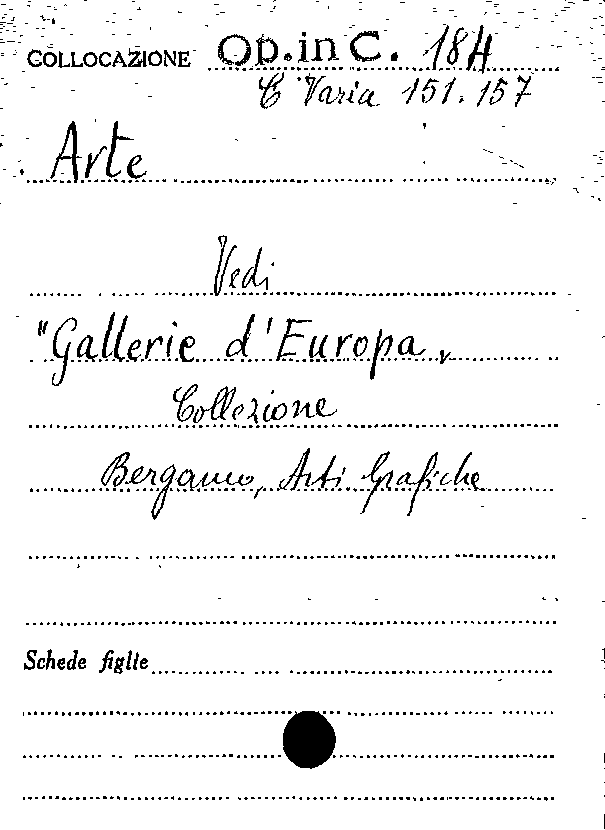 COLLOCAZIONE Op. in C. 184
C Varia 151.157
Arte
Vedi
"Gallerie d'Europa"
Collezione
Bergamo, Arti Grafiche
Schede figlie